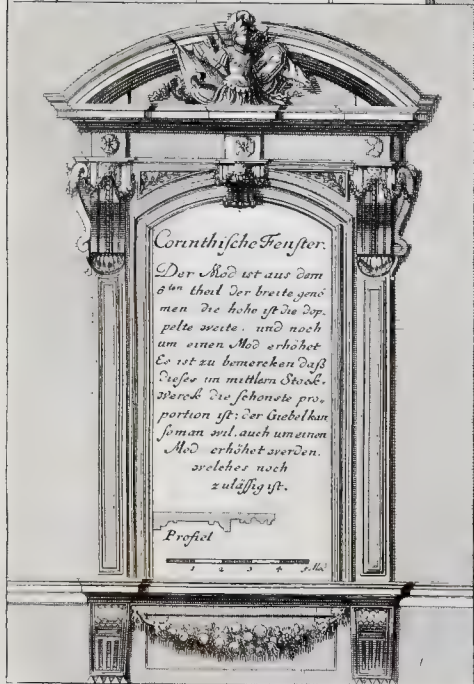 Corinthische Fenster.
Der Mod ist aus dem
6ten theil der breite genō
men die hohe ist die dop-
pelte weite. und noch
um einen Mod erhöhet
Es ist zu bemercken daß
dieses im mittlern Stock-
werck die schonste pro-
portion ist: der Giebel kan
so man wil. auch um einen
Mod erhöhet werden.
welches noch
zulässig ist.
Profiel
1 2 3 4 5 Mod
1